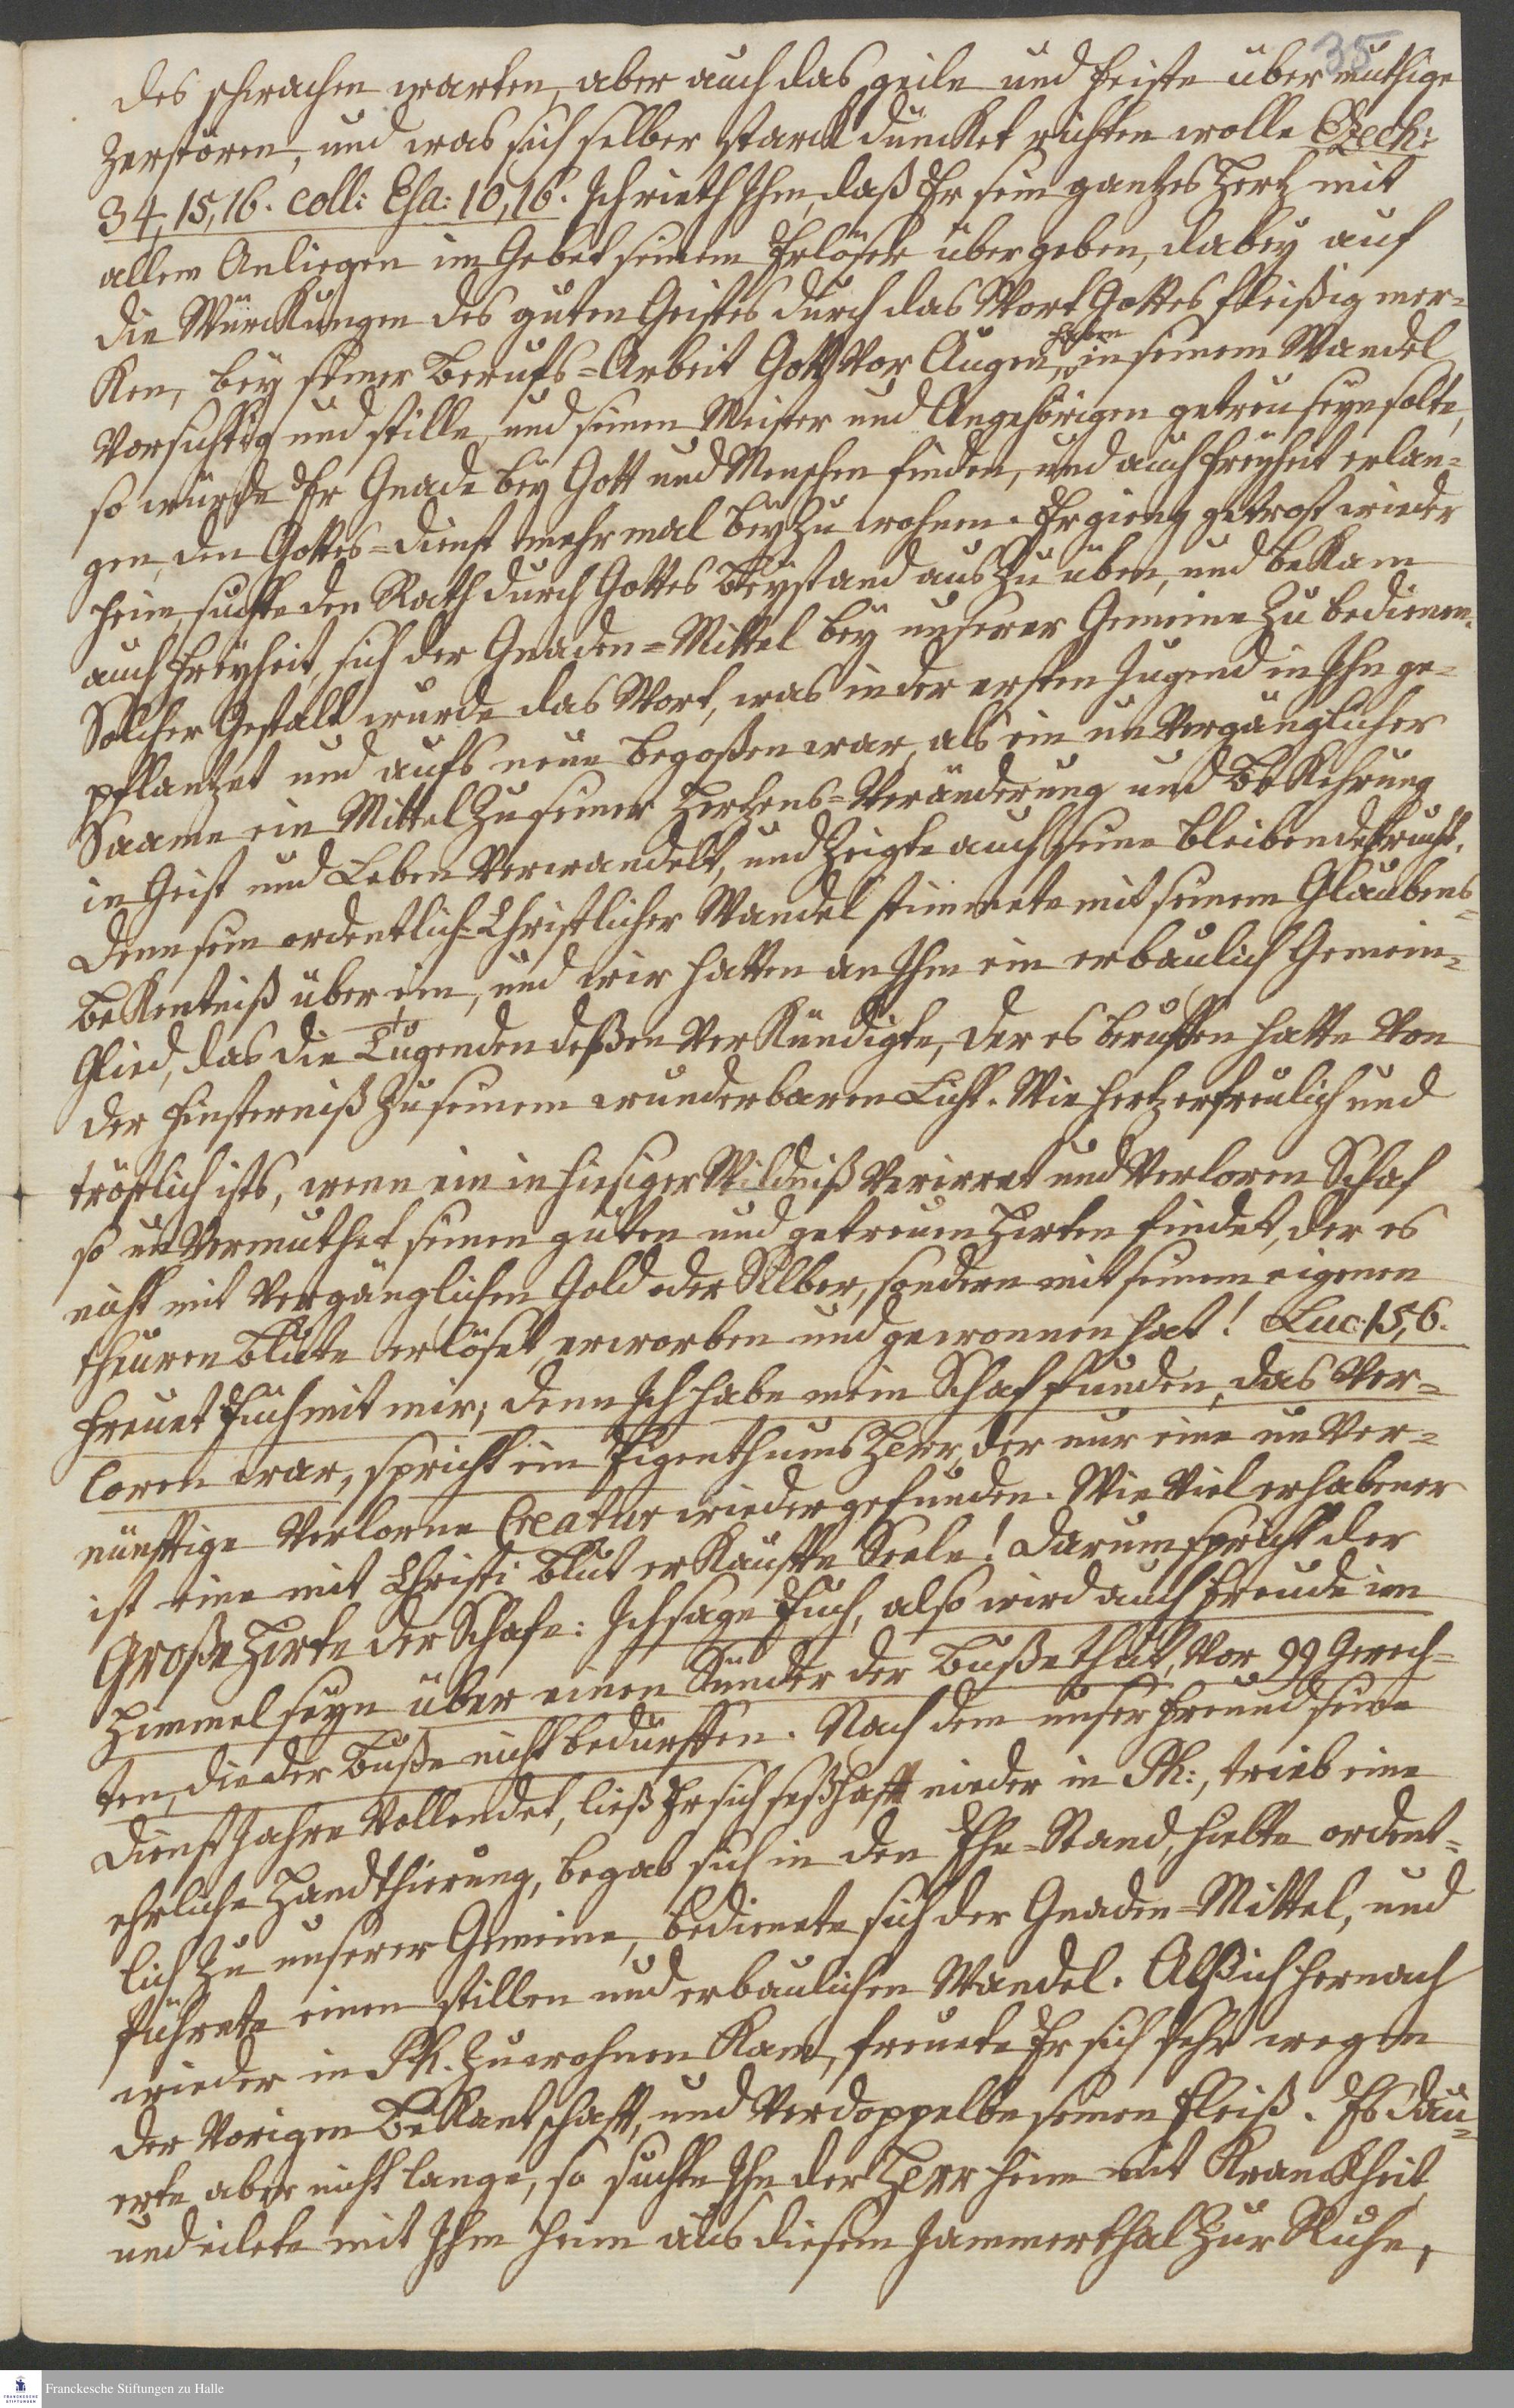 35
des schwachen warten, aber auch das geile und feiste über muthige
Zerstören, und was sich selber starck düncket richten wolle Ezech:
34, 15, 16. coll: Esa: 10, 16. Ich rieth Ihm, daß Er sein gantzes Hertz mit
allem Anliegen im Gebet seinem Erlöser übergeben, dabeÿ auf
die Würckungen des guten Geistes durch das Wort Gottes fleißig mer=
ken, beÿ seiner Berufs=Arbeit Gott vor Augen, haben in seinem Wandel
vorsichtig und stille, und seinem Meister und Angehörigen getreu seÿn solte,
so würde Er Gnade beÿ Gott und Menschen finden, und auch Freÿheit erlan=
gen, den Gottes=dienst mehrmal beÿ zu wohnen. Er gieng getrost wieder
heim, suchte den Rath durch Gottes Beÿstand aus zu üben, und bekam
auch Freÿheit, sich der Gnaden=Mittel beÿ unserer Gemeine zu bedienen.
Solcher Gestalt wurde das Wort, was in der ersten Jugend in Ihn ge=
pflantzet und aufs neue begoßen war, als ein unvergänglicher
Saame ein Mittel zu seiner Hertzens=Veränderung und Bekehrung
in Geist und Leben verwandelt, und zeigte auch seine bleibende Frucht.
Denn sein ordentlich=Christlicher Wandel stimmete mit seinem Glaubens=
Bekentniß über ein, und wir hatten an Ihm ein erbaulich Gemein=
Glied, das die Tugenden deßen verkündigte, der es beruffen hatte von
der Finsterniß zu seinem wunderbaren Licht. Wie hertzerfreulich und
tröstlich ists, wenn ein in hiesiger Wildniß verirret und verloren Schaf
so unvermuthet seinen guten und getreuen Hirten findet, der es
nicht mit vergänglichen Gold oder Silber, sondern mit seinem eigenen
theuren Blute erlöset, erworben und gewonnen hat! Luc: 15, 6.
Freuet Euch mit mir; denn Ich habe mein Schaf funden, das ver=
loren war, spricht ein Eigenthums Herr, der nur eine unver=
nünftige verlorne Creatur wiedergefunden. Wie viel erhabener
ist eine mit Christi Blut erkaufte Seele! Darum spricht der
Große Hirte der Schafe: Ich sage Euch, also wird auch Freude im
Himmel seÿn über einen Sünder der Buße thut, vor 99 Gerech=
ten, die der Buße nicht bedürffen. Nach dem unser Freund seine
Dienst Jahre vollendet, ließ Er sich seßhafft nieder in Ph:, trieb eine
ehrliche Handthierung, begab sich in den Ehe=Stand, hielte ordent=
lich zu unserer Gemeine, bedienete sich der Gnaden=Mittel, und
führete einen stillen und erbaulichen Wandel. Als ich hernach
wieder in Ph. zu wohnen kam, freuete Er sich sehr wegen
der vorigen Bekantschafft, und verdoppelte seinen Fleiß. Es dau=
erte aber nicht lange, so suchte Ihn der Herr heim mit Kranckheit,
und eilete mit Ihm heim aus diesem Jammerthal zur Ruhe,
Franckesche Stiftungen zu Halle